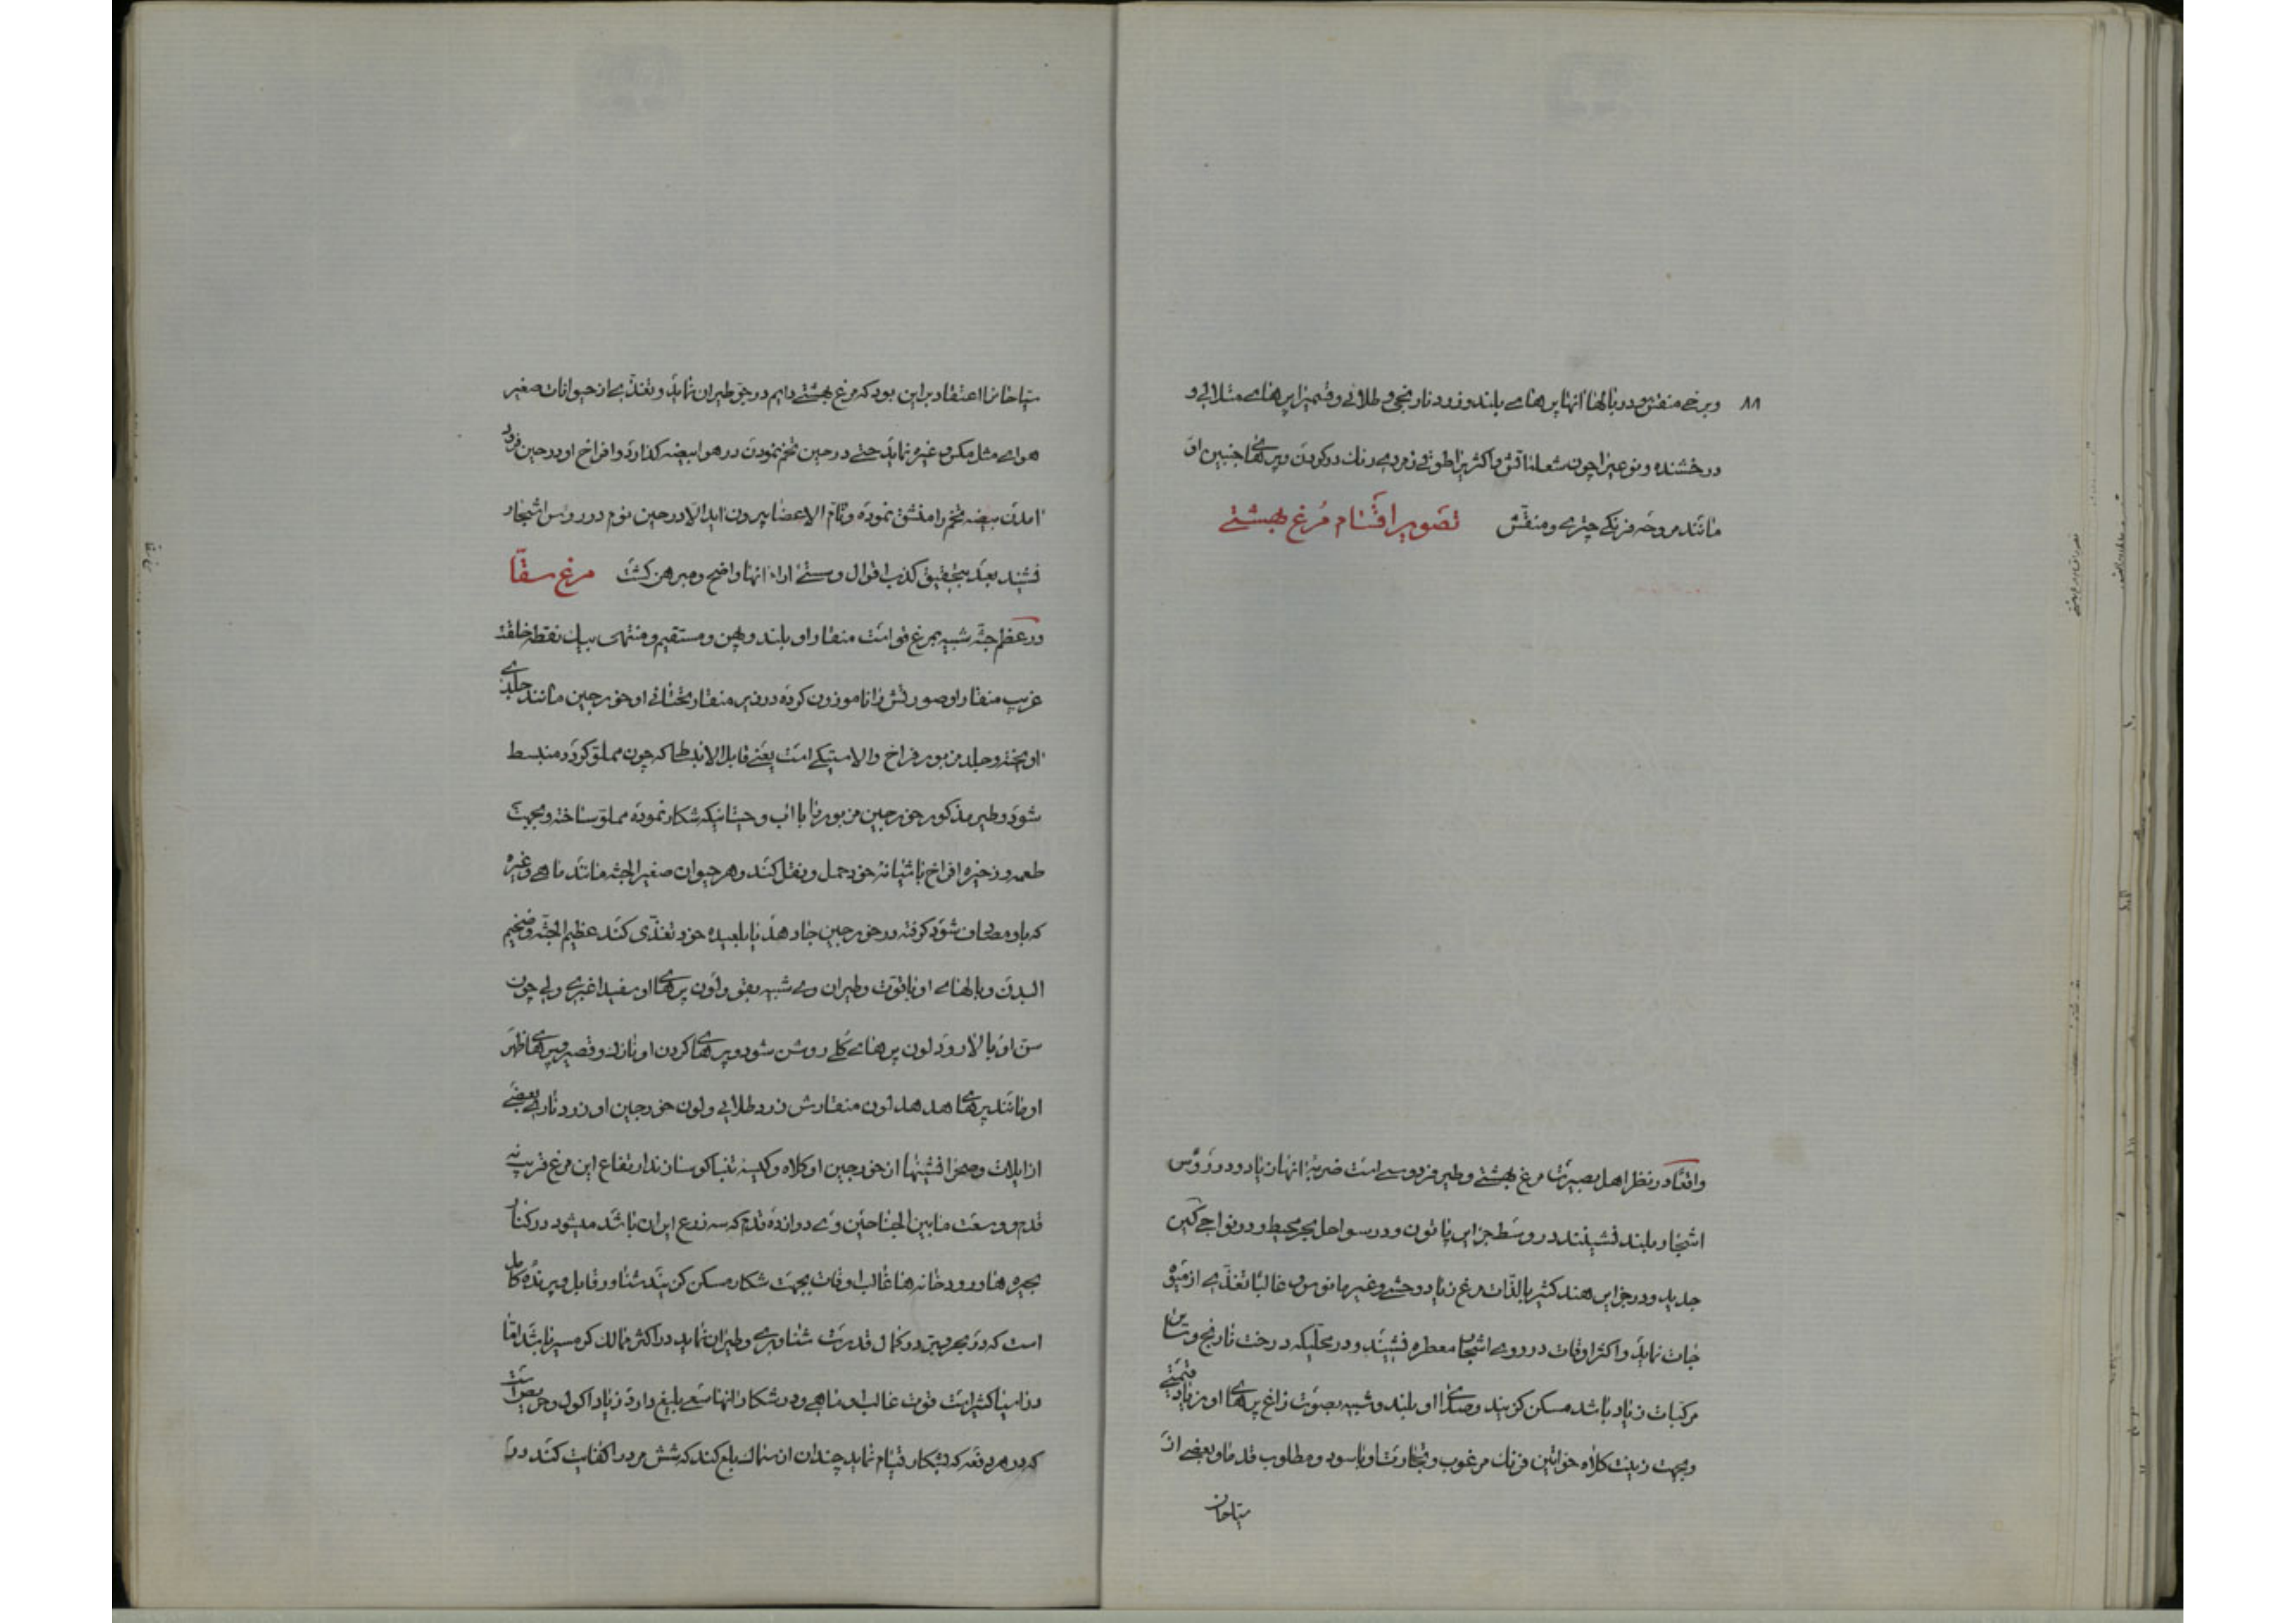 ۸۸ و برخی منقش و در بالهای آنها پرهای بلند و زرد نارنجی و طلائی و قسمیرا پرهای متلالی و
درخشنده و نوعیرا چون شعله آتش و اکثریرا طوقی زمردی رنگ در گردن و پرهای جنبین او
مانند مروحه فرنگی چتری و منقش تصویر اقسام مرغ بهشتی
واقعاً در نظر اهل بصیرت مرغ بهشتی و طیر فردوسی است ضربه آنها زیاد و در رؤس
اشجار بلند نشینند در وسط جزایر پاپون و در سواحل بحر محیط و در نواحی کین
جدید و در جزایر هند کثیر بالذات مرغ زیاد وحشی و غیر مانوس و غالباً تغذی از میوه
جات نماید و اکثر اوقات در روی اشجار معطره نشیند و در محلیکه درخت نارنج و سایر
مرکبات زیاد باشد مسکن گزیند و صدای او بلند و شبیه بصوت زاغ پرهای او زیاد قیمتی
و بجهت زینت کلاه خواتین فرنگ مرغوب و تجارت او با سود و مطلوب قدما و بعضی از
سیاحان
سیاحانرا اعتقاد بر این بود که مرغ بهشتی دایم در جو طیران نماید و تغذی از حیوانات صغیر
هوای مثل مگس و غیره نماید حتی در حین تخم نمودن در هوا بیضه گذارد و افراخ او در حین فرود
آمدن بیضه تخم را منشق نموده و تام الاعضا بیرون آید الا در حین نوم در رؤس اشجار
نشیند بعد بتحقیق کذب اقوال و سستی آراء آنها واضح و مبرهن گشت مرغ سقا
در عظم جثه شبیه بمرغ قو است منقار او بلند و پهن و مستقیم و منتهی بیک نقطه خلقت
غریب منقار او صورتش را ناموزون کرده در زیر منقار تحتانی او خورجین مانند جلدی
آویخته و جلد مزبور فراخ و الاستیکی است یعنی قابل الانبساط که چون مملو گردد منبسط
شود و طیر مذکور خورجین مزبور را با آب و حیتانیکه شکار نموده مملو ساخته و بجهت
طعمه و ذخیره افراخ باشیانه خود حمل و نقل کند و هر حیوان صغیر الجثه مانند ماهی و غیره
که باو مصادف شود گرفته در خورجین جا دهد یا بلعیده خود تغذی کند عظیم الجثه و ضخیم
البدن و بالهای او با قوت و طیران وی شبیه بقو و لون پرهای او سفید اغبری ولی چون
سن او بالا رود لون پرهای کلی روشن شود و پرهای گردن او نازک و قصیر و پرهای ظهر
او مانند پرهای هدهد لون منقارش زرد طلائی و لون خورجین او زرد تاری بعضی
از ایلات و صحرا نشینها از خورجین او کلاه و کیسه تنباکو سازند ارتفاع این مرغ قریب به
قدم و وسعت مابین الجناحین وی دوازده قدم که سه زرع ایران باشد میشود در کنار
بحیره ها و رودخانه ها غالب اوقات بجهت شکار مسکن گزیند شناور قابل و پرنده کامل
است که در بحر و بر در کمال قدرت شناوری و طیران نماید در اکثر ممالک گرمسیر باشد اما
در آسیا اکثر است قوت غالب او ماهی و در شکار آنها سعی بلیغ دارد زیاد اکول و حریص است
که در هر دفعه که بشکار قیام نماید چندان از سمک بلع کند که شش مرد را کفایت کند در